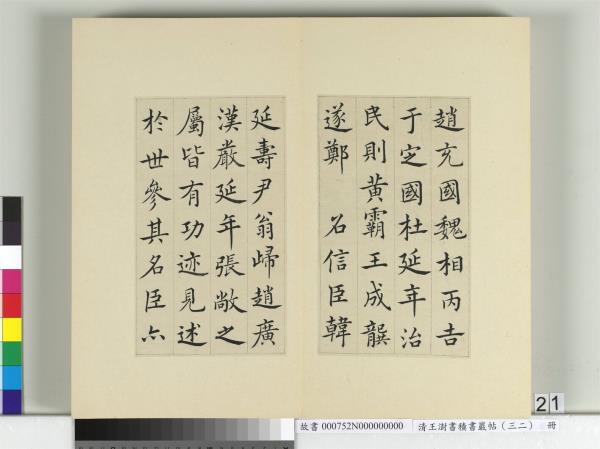 趙充國魏相丙吉
于定國杜延年治
民則黃霸王成龔
遂鄭 名信臣韓
延壽尹翁歸趙廣
漢嚴延年張敞之
屬皆有功迹見述
於世參其名臣亦
21
故書 000752N000000000 清王澍書積書巖帖(三二) 冊